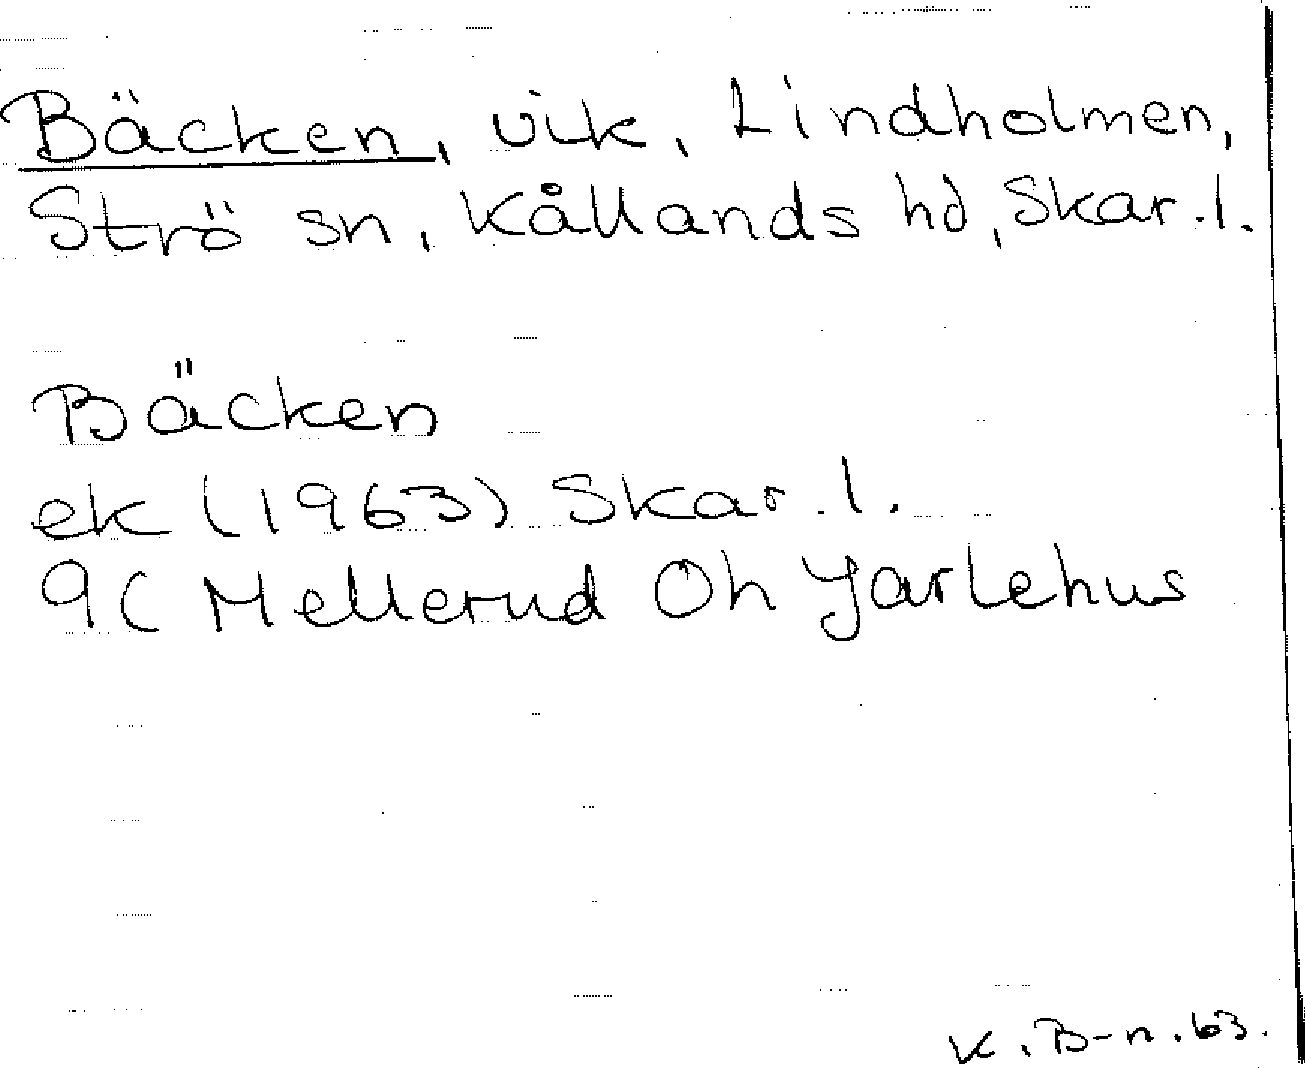 Bäcken, vik, Lindholmen,
Strö sn, Kållands hd, Skar.l.
Bäcken
ek (1963) Skar.l.
9C Mellerud Öh Jarlehus
K.B-n.63.